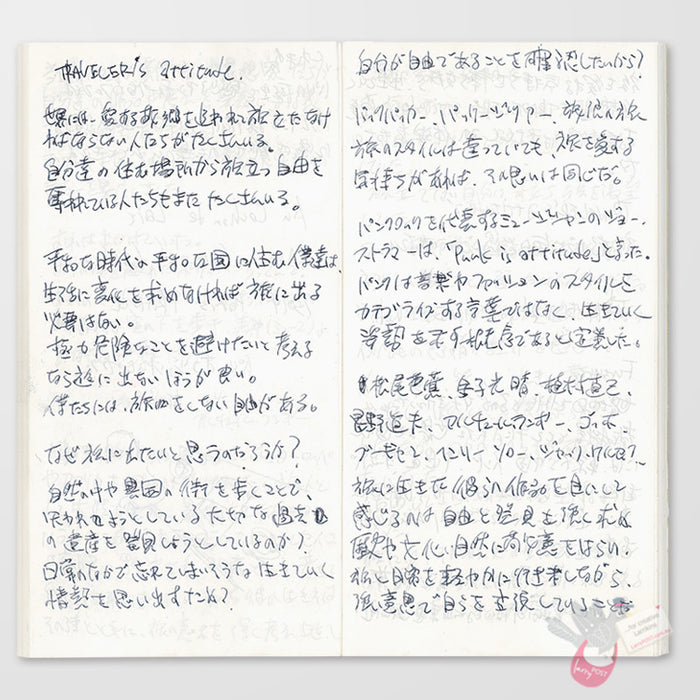 TRAVELER'S attitude.
世界には、愛する故郷を追われ旅立たなけ
ればならない人たちがたくさんいる。
自分達の住む場所から旅立つ自由を
奪われている人たちもまた たくさんいる。
平和な時代の平和な国に住む僕達は、
生活に変化を求めなければ旅に出る
必要はない。
極力危険なことを避けたいと考える
なら旅に出ないほうが良い。
僕たちには、旅をしない自由がある。
なぜ旅に出たいと思うのだろうか?
自然の中や異国の街を歩くことで、
失われようとしている大切な過去
の遺産を発見しようとしているのか?
日常のなかで忘れてしまいそうな生きていく
情熱を思い出すため?
自分が自由であることを確認したいから?
バックパッカー、パッケージツアー、放浪の旅
旅のスタイルは違っていても、旅を愛する
気持ちがあれば、その思いは同じだ。
パンクロックを代表するミュージシャンのジョー・
ストラマーは、「Punk is attitude」と言った。
パンクは音楽やファッションのスタイルを
カテゴライズする言葉ではなく、生きていく
姿勢を示す概念であると定義した。
松尾芭蕉、金子光晴、植村直己、
星野道夫、アルチュール・ランボー、ゴッホ、
ゴーギャン、ヘンリー・ソロー、ジャック・ケルアック…
旅に生きた彼らの作品を目にして
感じるのは自由と発見を強く求め
歴史や文化、自然に敬意をはらい、
旅と日常を軽やかに行き来しながら
強い意思で自らを主張していることだ
for creative
Larry POST